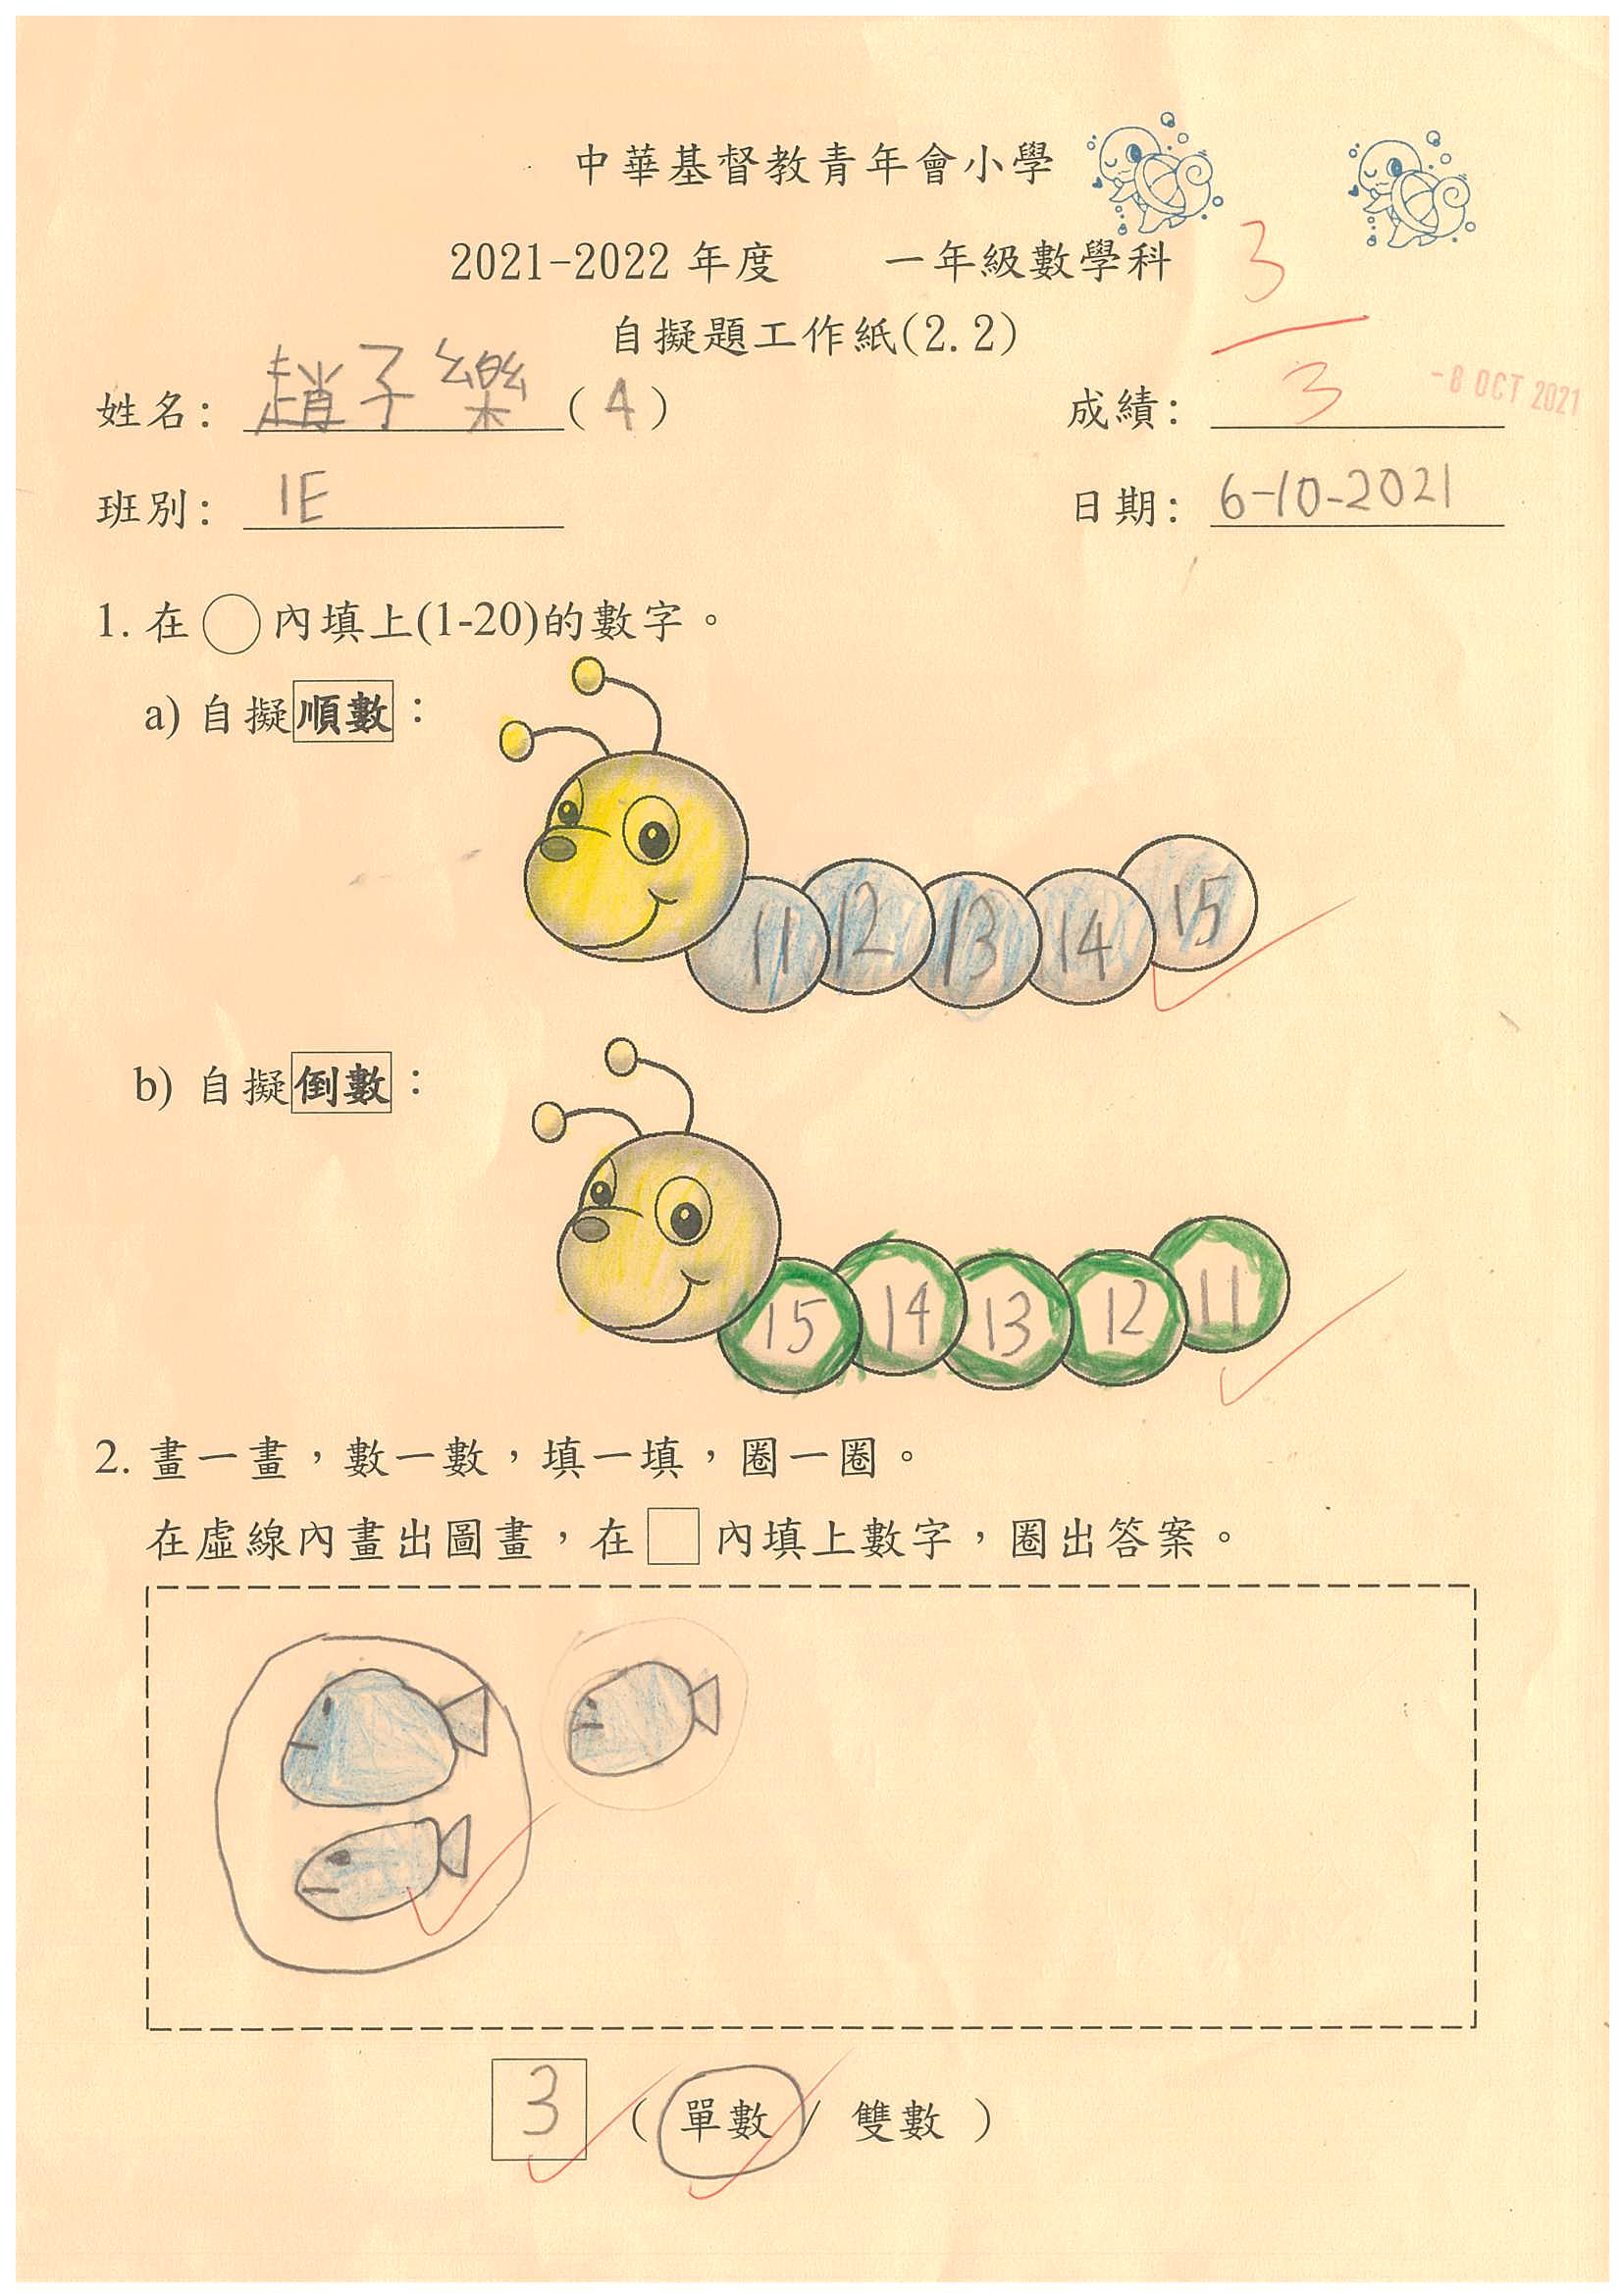 中華基督教青年會小學
2021-2022 年度 一年級數學科
自擬題工作紙(2.2)
3
3
-8 OCT 2021
姓名: 趙子樂 (4) 成績:
班別: 1E 日期: 6-10-2021
1. 在○內填上(1-20)的數字。
a) 自擬順數:
11 12 13 14 15
b) 自擬倒數:
15 14 13 12 11
2. 畫一畫,數一數,填一填,圈一圈。
在虛線內畫出圖畫,在□內填上數字,圈出答案。
3 (單數 / 雙數)